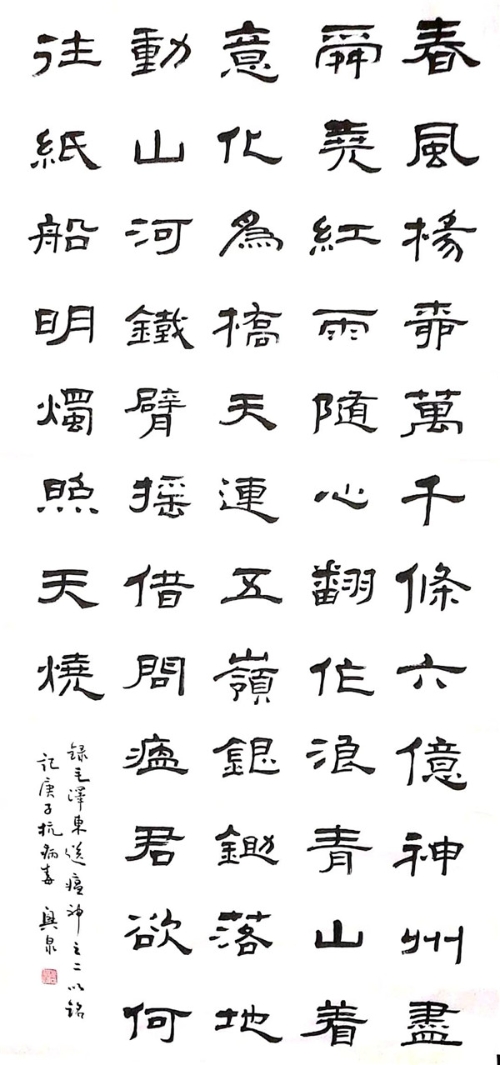 春風楊柳萬千條六億神州盡
舜堯紅雨隨心翻作浪青山着
意化爲橋天連五嶺銀鋤落地
動山河鐵臂摇借問瘟君欲何
往紙船明燭照天燒
録毛澤東送瘟神之二以銘
記庚子抗病毒 興泉